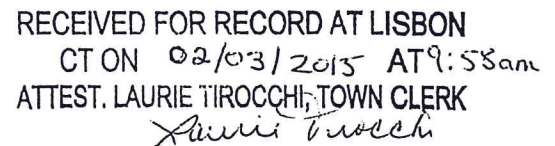 RECEIVED FOR RECORD AT LISBON
CT ON 02/03/2015 AT 9:58am
ATTEST. LAURIE TIROCCHI, TOWN CLERK
Laurie Tirocchi